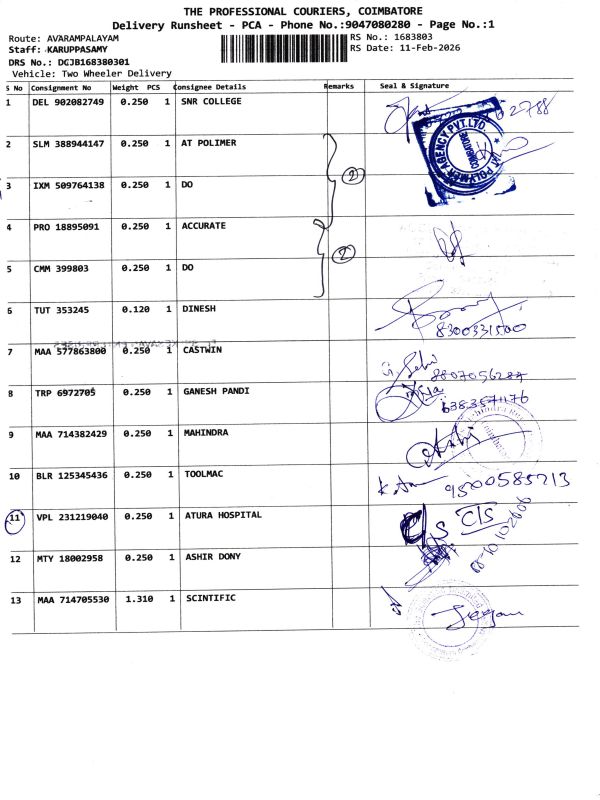 THE PROFESSIONAL COURIERS, COIMBATORE
Delivery Runsheet - PCA - Phone No.:9047080280 - Page No.:1
Route: AVARAMPALAYAM
RS No.: 1683803
Staff: KARUPPASAMY
RS Date: 11-Feb-2026
DRS No.: DGJB168380301
Vehicle: Two Wheeler Delivery
S No Consignment No Weight PCS Consignee Details Remarks Seal & Signature
1 DEL 902082749 0.250 1 SNR COLLEGE
2 SLM 388944147 0.250 1 AT POLIMER
AT POLYMER AGENCY PVT.LTD. COIMBATORE
3 IXM 509764138 0.250 1 DO
2
4 PRO 18895091 0.250 1 ACCURATE
2
5 CMM 399803 0.250 1 DO
6 TUT 353245 0.120 1 DINESH
8300331500
7 MAA 577863800 0.250 1 CASTWIN
8807056287
8 TRP 6972705 0.250 1 GANESH PANDI
6383571176
9 MAA 714382429 0.250 1 MAHINDRA
10 BLR 125345436 0.250 1 TOOLMAC
9500585213
11 VPL 231219040 0.250 1 ATURA HOSPITAL
CTS
12 MTY 18002958 0.250 1 ASHIR DONY
13 MAA 714705530 1.310 1 SCINTIFIC